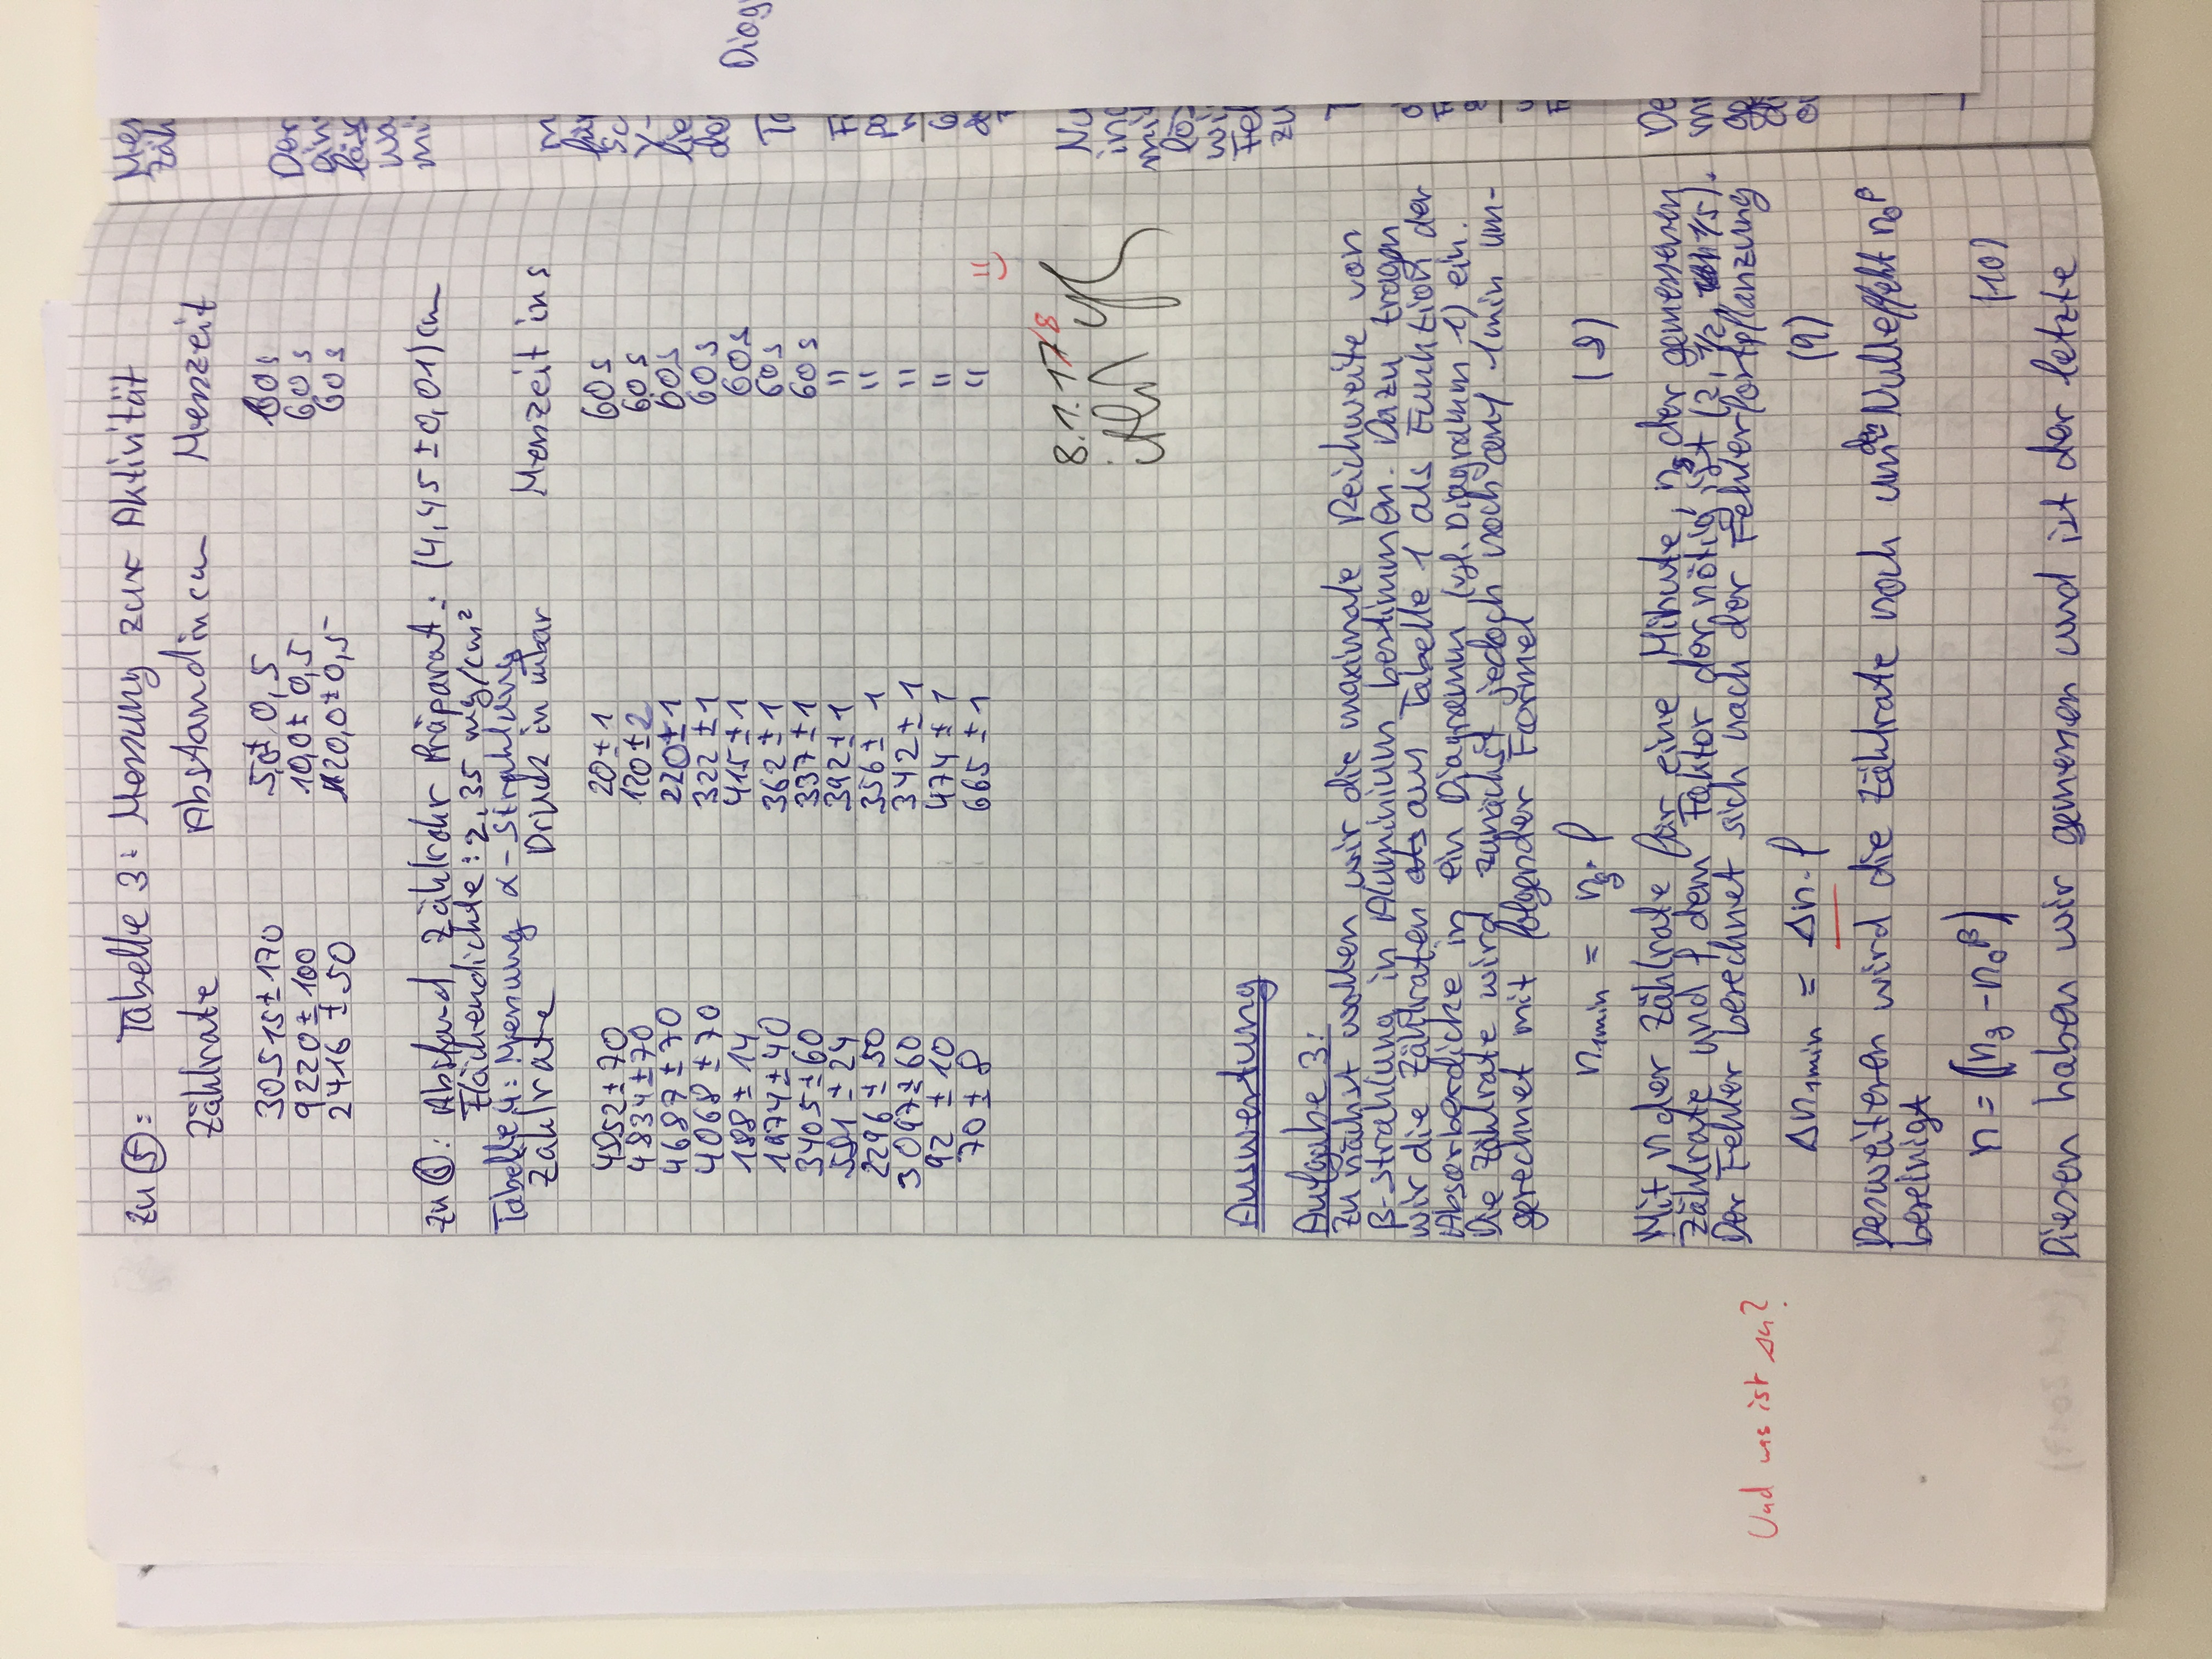 Zu ⑤: Tabelle 3: Messung zur Aktivität
Zählrate Abstand in cm Messzeit
30515 ± 170 5,0 ± 0,5 60s
9220 ± 100 10,0 ± 0,5 60s
2416 ± 50 20,0 ± 0,5 60s
Zu ⑥: Abstand Zählrohr Präparat: (4,45 ± 0,01) cm
Flächendichte: 2,35 mg/cm²
Tabelle 4: Messung α-Strahlung
Zählrate Druck in mbar Messzeit in s
4952 ± 70 20 ± 1 60s
4834 ± 70 120 ± 2 60s
4687 ± 70 220 ± 1 60s
4068 ± 70 322 ± 1 60s
188 ± 14 415 ± 1 60s
1974 ± 40 362 ± 1 60s
3405 ± 60 337 ± 1 60s
581 ± 24 392 ± 1 "
2296 ± 50 356 ± 1 "
3097 ± 60 342 ± 1 "
92 ± 10 474 ± 1 "
70 ± 8 665 ± 1 "
8.1.17 8
Auswertung
Aufgabe 3:
Zunächst wollen wir die maximale Reichweite von
β-Strahlung in Aluminium bestimmen. Dazu tragen
wir die Zählraten aus Tabelle 1 als Funktion der
Absorberdicke in ein Diagramm (vgl. Diagramm 1) ein.
Die Zählrate wird zunächst jedoch noch auf 1min um-
gerechnet mit folgender Formel
n₁min = ng · f (8)
Mit n der Zählrate für eine Minute, ng der gemessenen
Zählrate und f dem Faktor der nötig ist (2, 1/2, 1/5).
Der Fehler berechnet sich nach der Fehlerfortpflanzung
Und was ist Δn?
Δn₁min = Δn · f (9)
Desweiteren wird die Zählrate noch um den Nulleffekt n₀^β
bereinigt
n = (ng - n₀^β) (10)
Diesen haben wir gemessen und ist der letzte